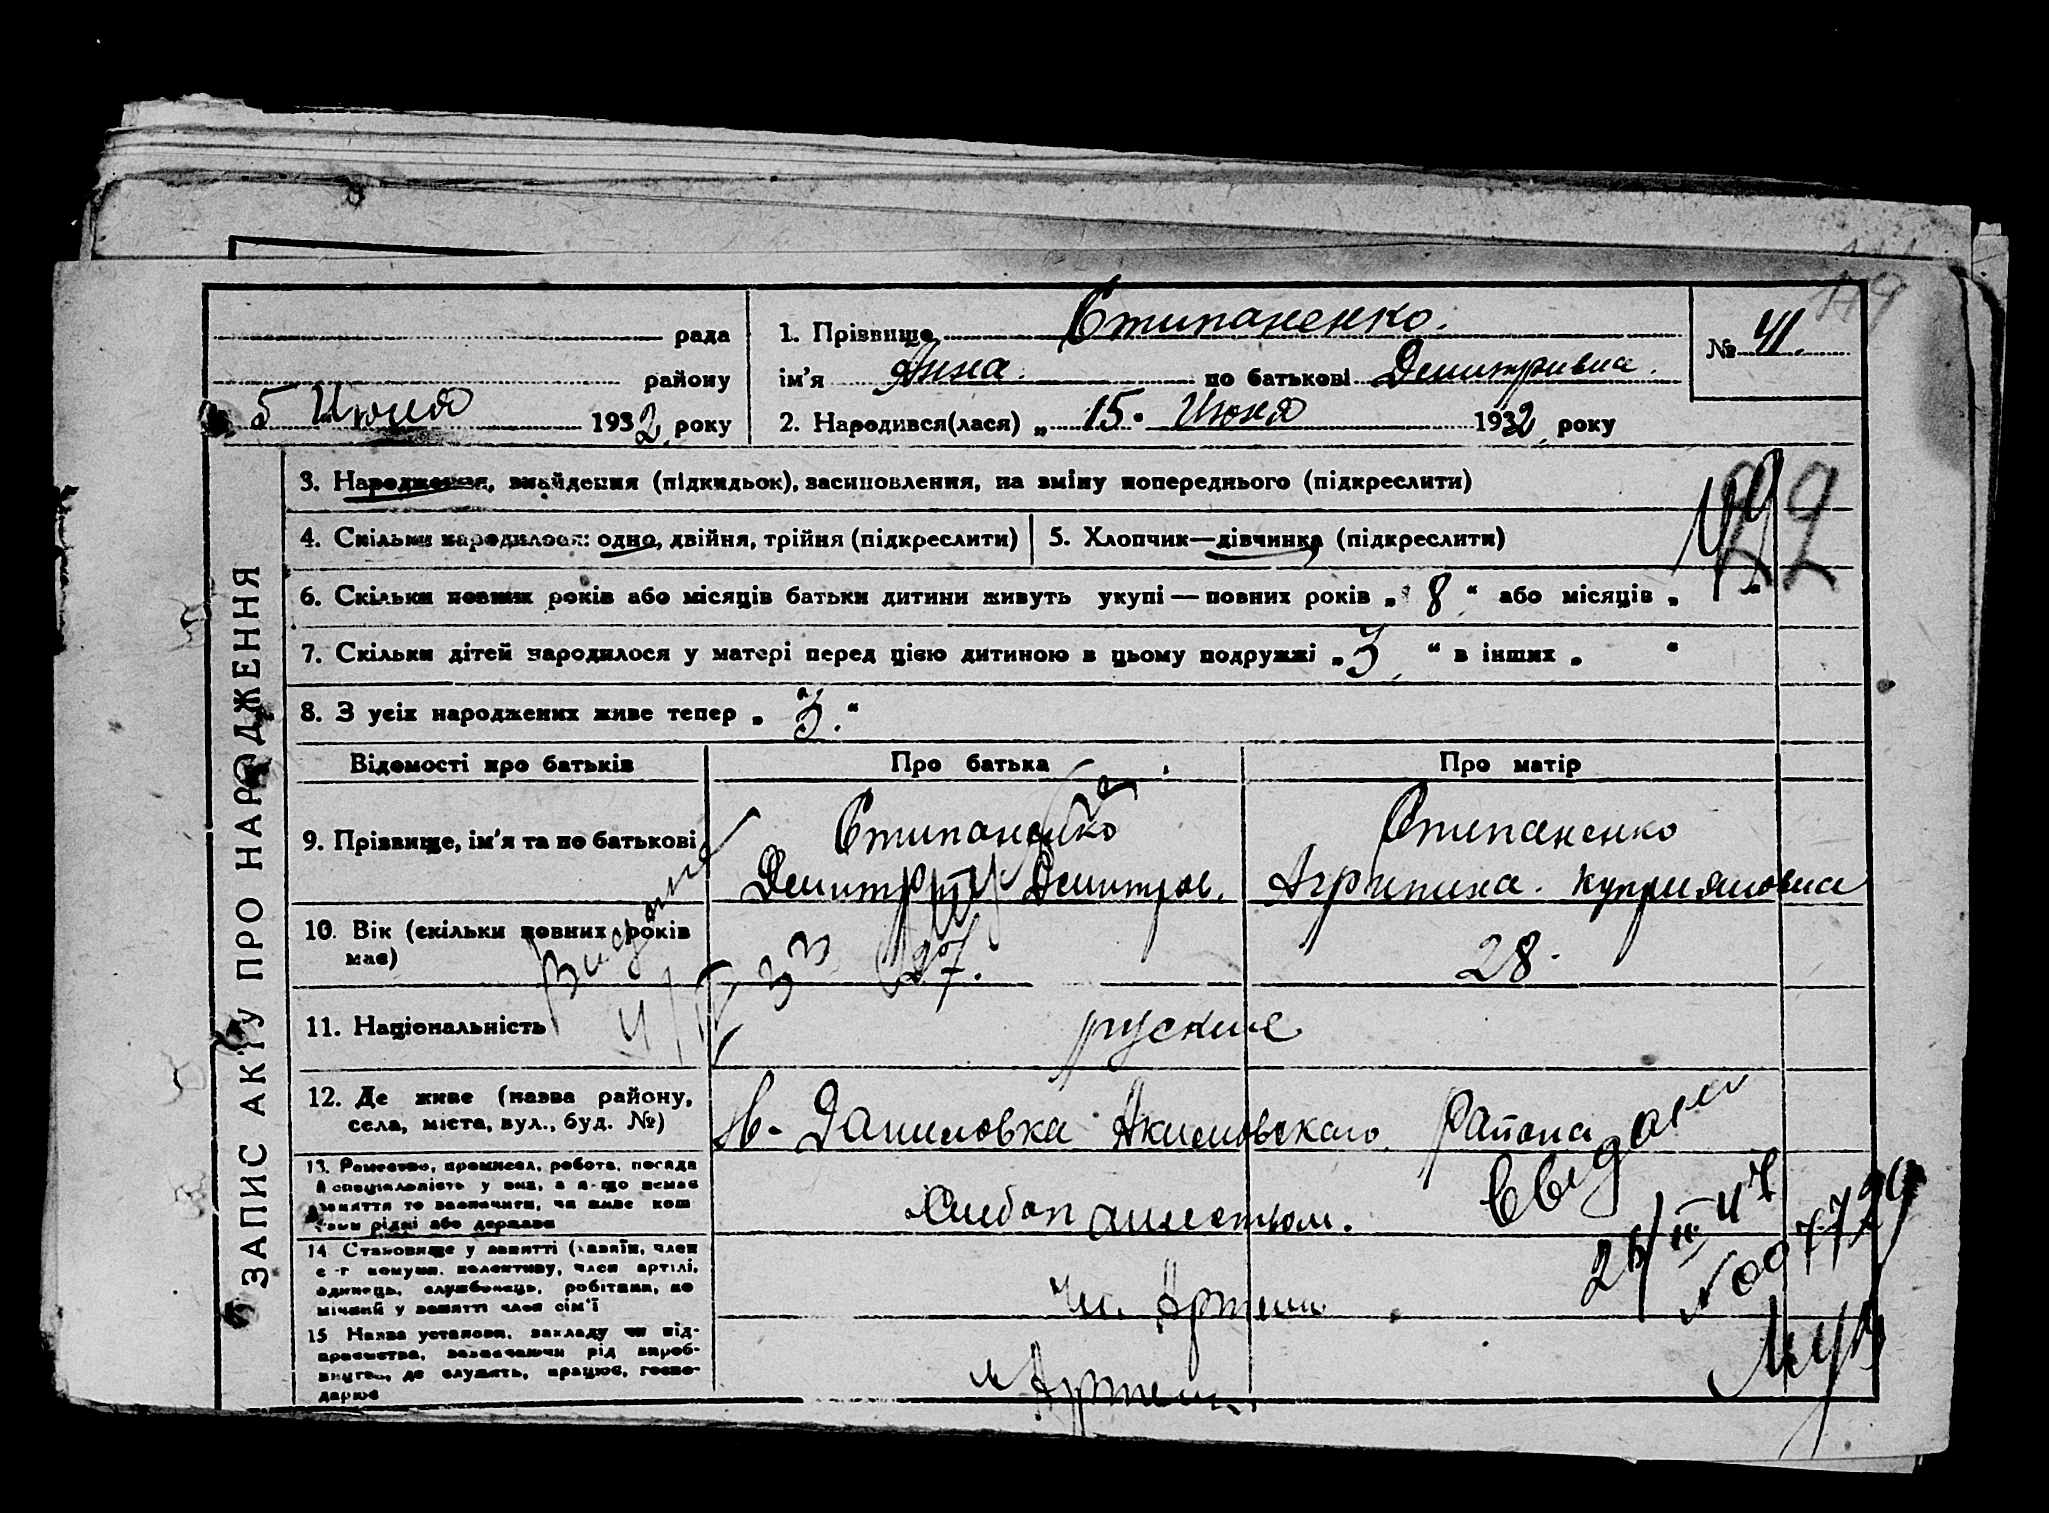 рада
району
5 Июля 1932 року
1. Прізвище Стипаненко.
ім'я Анна. по батькові Демитривна.
2. Народився(лася) „ 15. Июня 1932 року
№ 41.
ЗАПИС АКТУ ПРО НАРОДЖЕННЯ
3. Народження, знайдення (підкидьок), засиновлення, на зміну попереднього (підкреслити)
4. Скільки народилося: одно, двійня, трійня (підкреслити)
5. Хлопчик—дівчинка (підкреслити)
6. Скільки повних років або місяців батьки дитини живуть укупі — повних років „ 8 “ або місяців „ “
7. Скільки дітей народилося у матері перед цією дитиною в цьому подружжі „ 3 “ в інших „ “
8. З усіх народжених живе тепер „ 3. “
Відомості про батьків Про батька Про матір
9. Прізвище, ім'я та по батькові
Стипаненко Стипаненко
Демитрий Демитров. Агрипина. Куприяновна
10. Вік (скільки повних років має)
27. 28.
11. Національність
руские
12. Де живе (назва району,
села, міста, вул., буд. №)
Н-Даниловка Акимовскаго Района
13. Ремество, промисел, робота, посада
й спеціяльність у них, а якщо немає
заняття то зазначити, чи живе кош-
тами рідні або держави
Хлебопашеством.
14 Становище у занятті (хазяїн, член
с.-г комуни, колективу, член артілі,
одинець, службовець, робітник, по-
мічний у занятті член сім'ї
Чл. Артели
15 Назва установи, закладу чи під-
приємства, зазначаючи рід вироб-
ництва, де служить, працює, госпо-
дарює
Артели